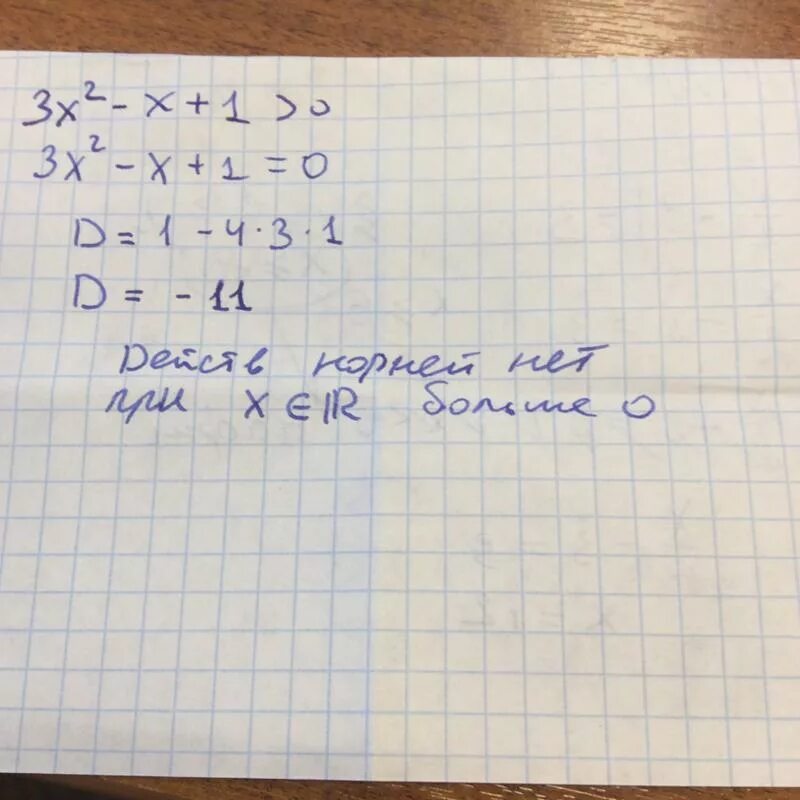 3x² - x + 1 > 0
3x² - x + 1 = 0
D = 1 - 4 · 3 · 1
D = - 11
Действ корней нет
при x ∈ ℝ больше 0